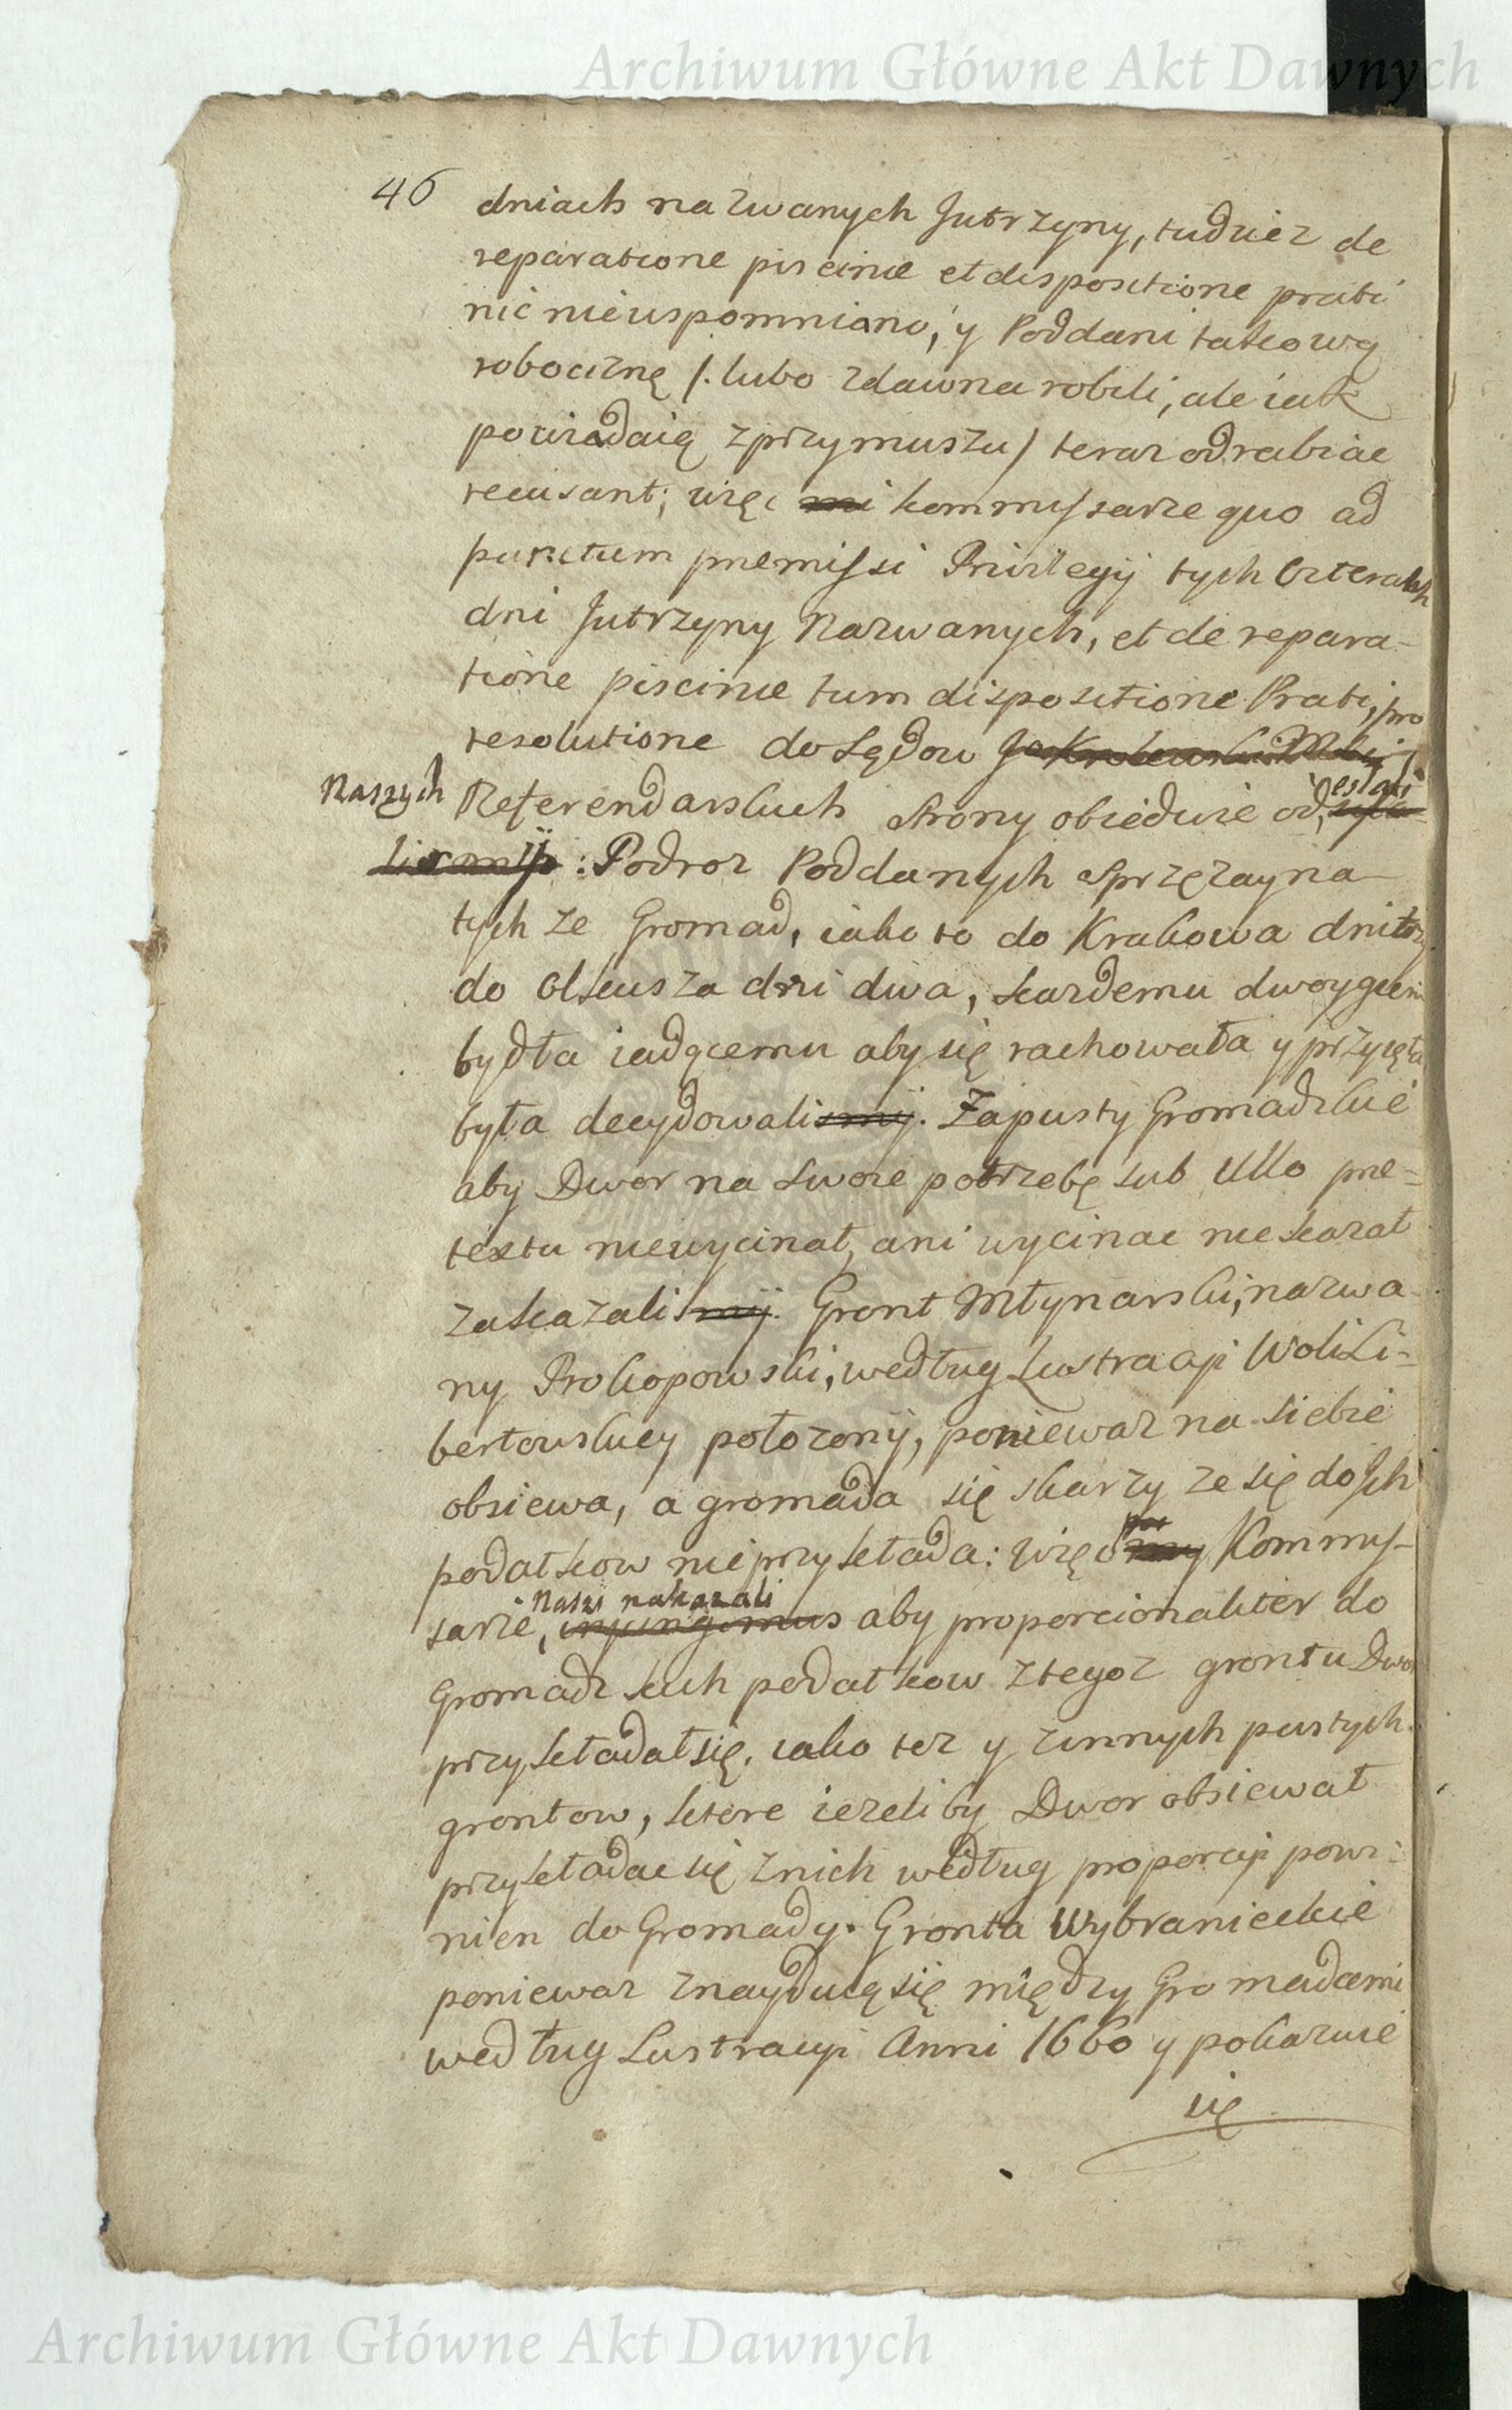 Archiwum Główne Akt Dawnych
46
dniach nazwanych Jutrzyny, tudziez de
reparatione piscinæ et dispositione prati
nic nieuspomniano, y Poddani takową
robociznę /. lubo zdawna robili, ale iak
powiadaią zprzymuszu / teraz odrabiac
recusant; więc kommyssarze quo ad
punctum præmissi Privilegij tych czterech
dni Jutrzyny Nazwanych, et de repara-
tione piscinæ tum dispositione Prati, pro
resolutione do Sądow
Naszych Referendarskich strony obiedwie odesłali
: Podroz Poddanych sprzęzayna
tych ze Gromad, iako to do Krakowa dni trzy
do Olkusza dni dwa, kazdemu dwoygiem
bydła iadącemu aby się rachowała y przyięta
była decydowali. Zapusty Gromadzkie
aby Dwor na swoie potrzebę sub Ullo præ-
textu niewycinał, ani wycinac nie kazał
zakazali. Gront Młynarski, nazwa-
ny Prokopowski, według Lustracyi Woli Li-
bertowskiey położony, poniewaz na siebie
obsiewa, a gromada się skarzy ze się do Ich
podatkow nieprzykłada: więc Kommys-
sarze, Nasi nakazali aby proporcionaliter do
Gromadzkich podatkow ztegoz grontu Dwor
przykładał się, iako tez y zinnych pustych
grontow, ktore iezeliby Dwor obsiewał
przykładac się znich według proporcyi powi-
nien do Gromady. Gronta Wybranieckie
poniewaz znayduią się między Gromadami
według Lustracyi Anni 1660 y pokazuie
się
Archiwum Główne Akt Dawnych